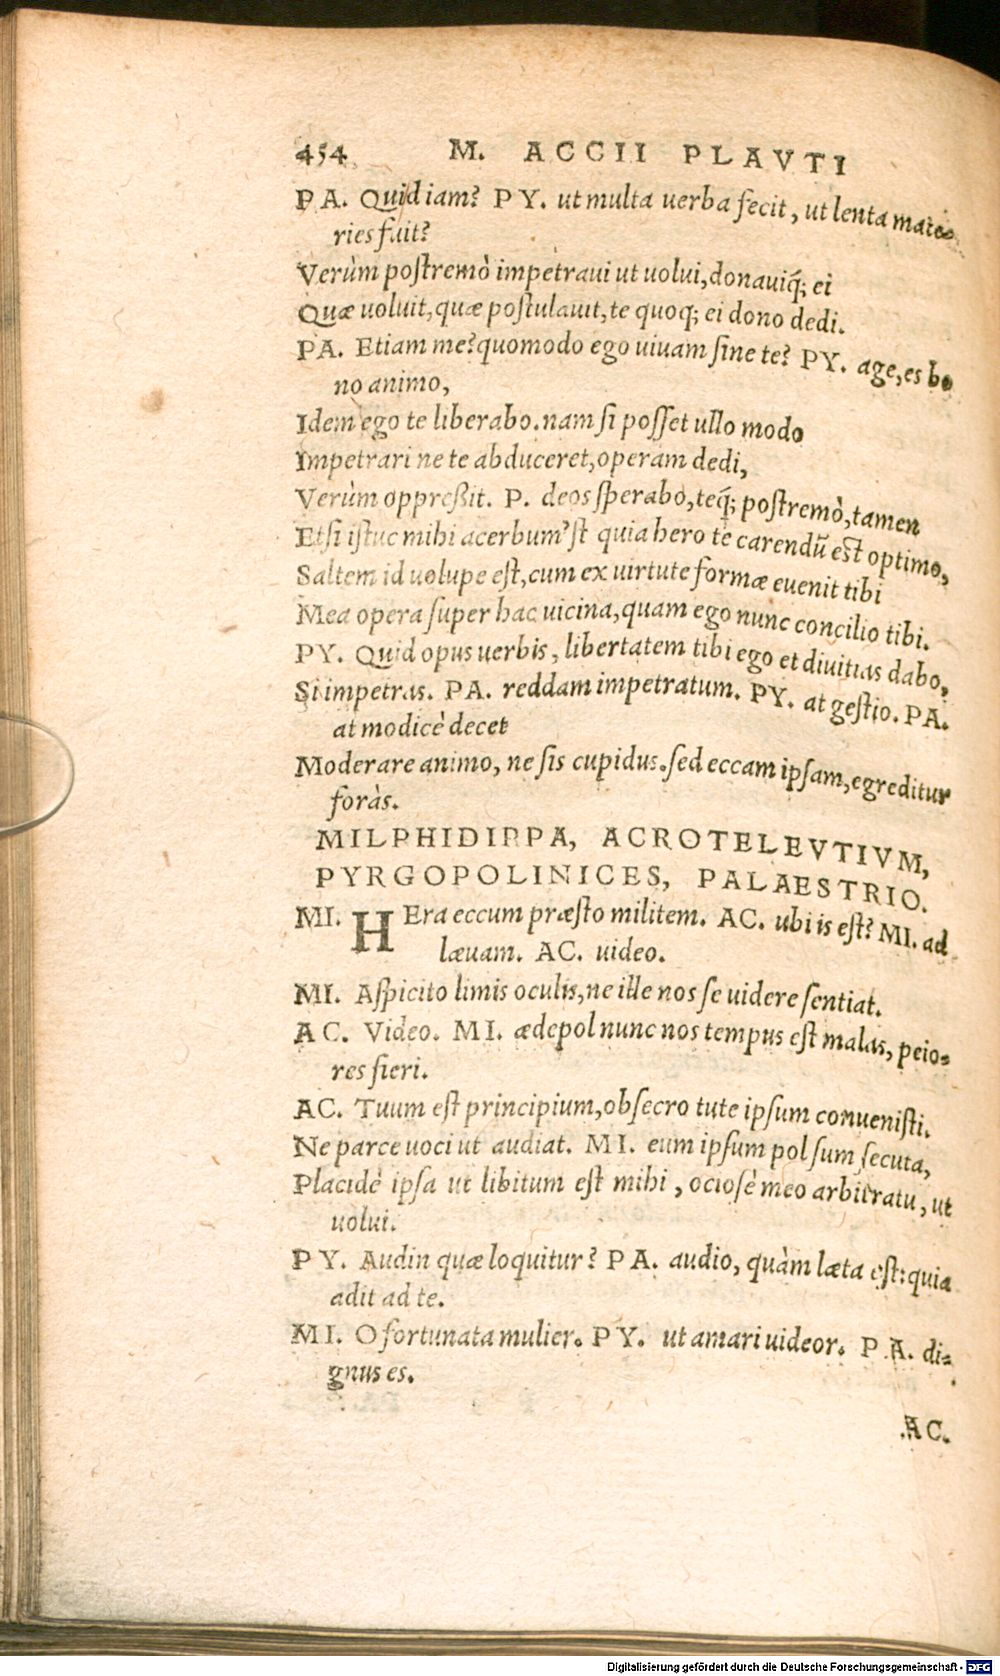 454 M. ACCII PLAVTI
PA. Quid iam? PY. ut multa uerba fecit, ut lenta mate-
ries fuit?
Verùm postremò impetraui ut uolui, donauiq́; ei
Quæ uoluit, quæ postulauit, te quoq; ei dono dedi.
PA. Etiam me? quomodo ego uiuam sine te? PY. age, es bo
no animo,
Idem ego te liberabo. nam si posset ullo modo
Impetrari ne te abduceret, operam dedi,
Verùm oppreßit. P. deos sperabo, teq́; postremò, tamen
Etsi istuc mihi acerbum'st quia hero te carendũ est optimo,
Saltem id uolupe est, cum ex uirtute formæ euenit tibi
Mea opera super hac uicina, quam ego nunc concilio tibi.
PY. Quid opus uerbis, libertatem tibi ego et diuitias dabo,
Si impetras. PA. reddam impetratum. PY. at gestio. PA.
at modicè decet
Moderare animo, ne sis cupidus. sed eccam ipsam, egreditur
foràs.
MILPHIDIPPA, ACROTELEVTIVM,
PYRGOPOLINICES, PALAESTRIO.
MI. HEra eccum præsto militem. AC. ubi is est? MI. ad
læuam. AC. uideo.
MI. Aspicito limis oculis, ne ille nos se uidere sentiat.
AC. Video. MI. ædepol nunc nos tempus est malas, peio-
res fieri.
AC. Tuum est principium, obsecro tute ipsum conuenisti.
Ne parce uoci ut audiat. MI. eum ipsum pol sum secuta,
Placidè ipsa ut libitum est mihi, ociosè meo arbitratu, ut
uolui.
PY. Audin quæ loquitur? PA. audio, quàm læta est: quia
adit ad te.
MI. O fortunata mulier. PY. ut amari uideor. PA. di-
gnus es.
AC.
Digitalisierung gefördert durch die Deutsche Forschungsgemeinschaft - DFG